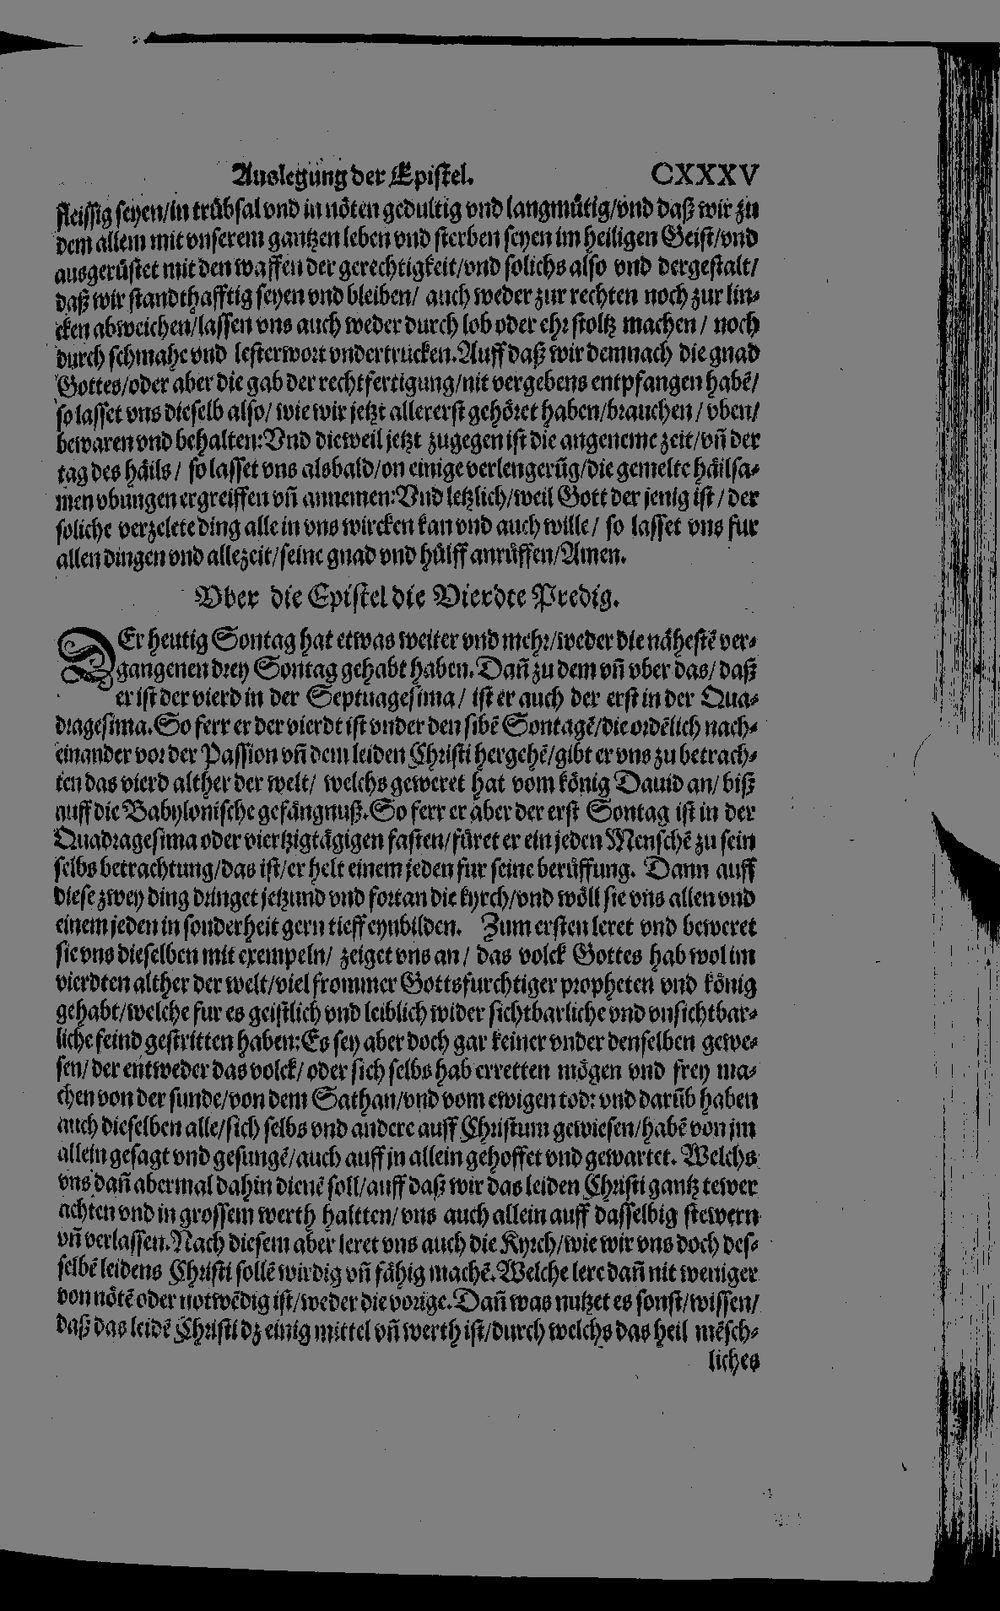 Auslegung der Epistel. CXXXV
fleissig seyen/in trübsal vnd in nöten gedultig vnd langmütig/vnd daß wir zu
dem allem mit vnserem gantzen leben vnd sterben seyen im heiligen Geist/vnd
ausgerüstet mit den waffen der gerechtigkeit/vnd solichs also vnd dergestalt/
daß wir standthafftig seyen vnd bleiben/ auch weder zur rechten noch zur lin-
cken abweichen/lassen vns auch weder durch lob oder ehr stoltz machen/ noch
durch schmahe vnd lesterwort vndertrucken. Auff daß wir demnach die gnad
Gottes/oder aber die gab der rechtfertigung/nit vergebens entpfangen habē/
so lasset vns dieselb also/ wie wir jetzt allererst gehöret haben/brauchen/ vben/
bewaren vnd behalten: Vnd dieweil jetzt zugegen ist die angeneme zeit/vn̄ der
tag des häils/ so lasset vns alsbald/on einige verlengerūg/die gemelte häilsa-
men vbungen ergreiffen vn̄ annemen: Vnd letzlich/weil Gott der jenig ist/ der
soliche verzelete ding alle in vns wircken kan vnd auch wille/ so lasset vns fur
allen dingen vnd allezeit/seine gnad vnd hülff anrüffen/Amen.
Vber die Epistel die Vierdte Predig.
DEr heutig Sontag hat etwas weiter vnd mehr/weder die nähestē ver-
gangenen drey Sontag gehabt haben. Dan̄ zu dem vn̄ vber das/ daß
er ist der vierd in der Septuagesima/ ist er auch der erst in der Qua-
dragesima. So ferr er der vierdt ist vnder den sibē Sontagē/die ordēlich nach-
einander vor der Passion vn̄ dem leiden Christi hergehē/gibt er vns zu betrach-
ten das vierd alther der welt/ welchs geweret hat vom könig Dauid an/ biß
auff die Babylonische gefängnuß. So ferr er aber der erst Sontag ist in der
Quadragesima oder viertzigtägigen fasten/füret er ein jeden Menschē zu sein
selbs betrachtung/das ist/er helt einem jeden fur seine berüffung. Dann auff
diese zwey ding dringet jetzund vnd fortan die kyrch/vnd wöll sie vns allen vnd
einem jeden in sonderheit gern tieff eynbilden. Zum ersten leret vnd beweret
sie vns dieselben mit exempeln/ zeiget vns an/ das volck Gottes hab wol im
vierdten alther der welt/viel frommer Gottsfurchtiger propheten vnd könig
gehabt/welche fur es geistlich vnd leiblich wider sichtbarliche vnd vnsichtbar-
liche feind gestritten haben: Es sey aber doch gar keiner vnder denselben gewe-
sen/ der entweder das volck/ oder sich selbs hab erretten mögen vnd frey ma-
chen von der sunde/von dem Sathan/vnd vom ewigen tod: vnd darūb haben
auch dieselben alle/sich selbs vnd andere auff Christum gewiesen/habē von jm
allein gesagt vnd gesungē/auch auff jn allein gehoffet vnd gewartet. Welchs
vns dan̄ abermal dahin dienē soll/auff daß wir das leiden Christi gantz tewer
achten vnd in grossem werth haltten/ vns auch allein auff dasselbig stewern
vn̄ verlassen. Nach diesem aber leret vns auch die Kyrch/wie wir vns doch des-
selbē leidens Christi sollē wirdig vn̄ fähig machē. Welche lere dan̄ nit weniger
von nötē oder notwēdig ist/weder die vorige. Dan̄ was nutzet es sonst/wissen/
daß das leidē Christi dz einig mittel vn̄ werth ist/durch welchs das heil mēsch-
liches